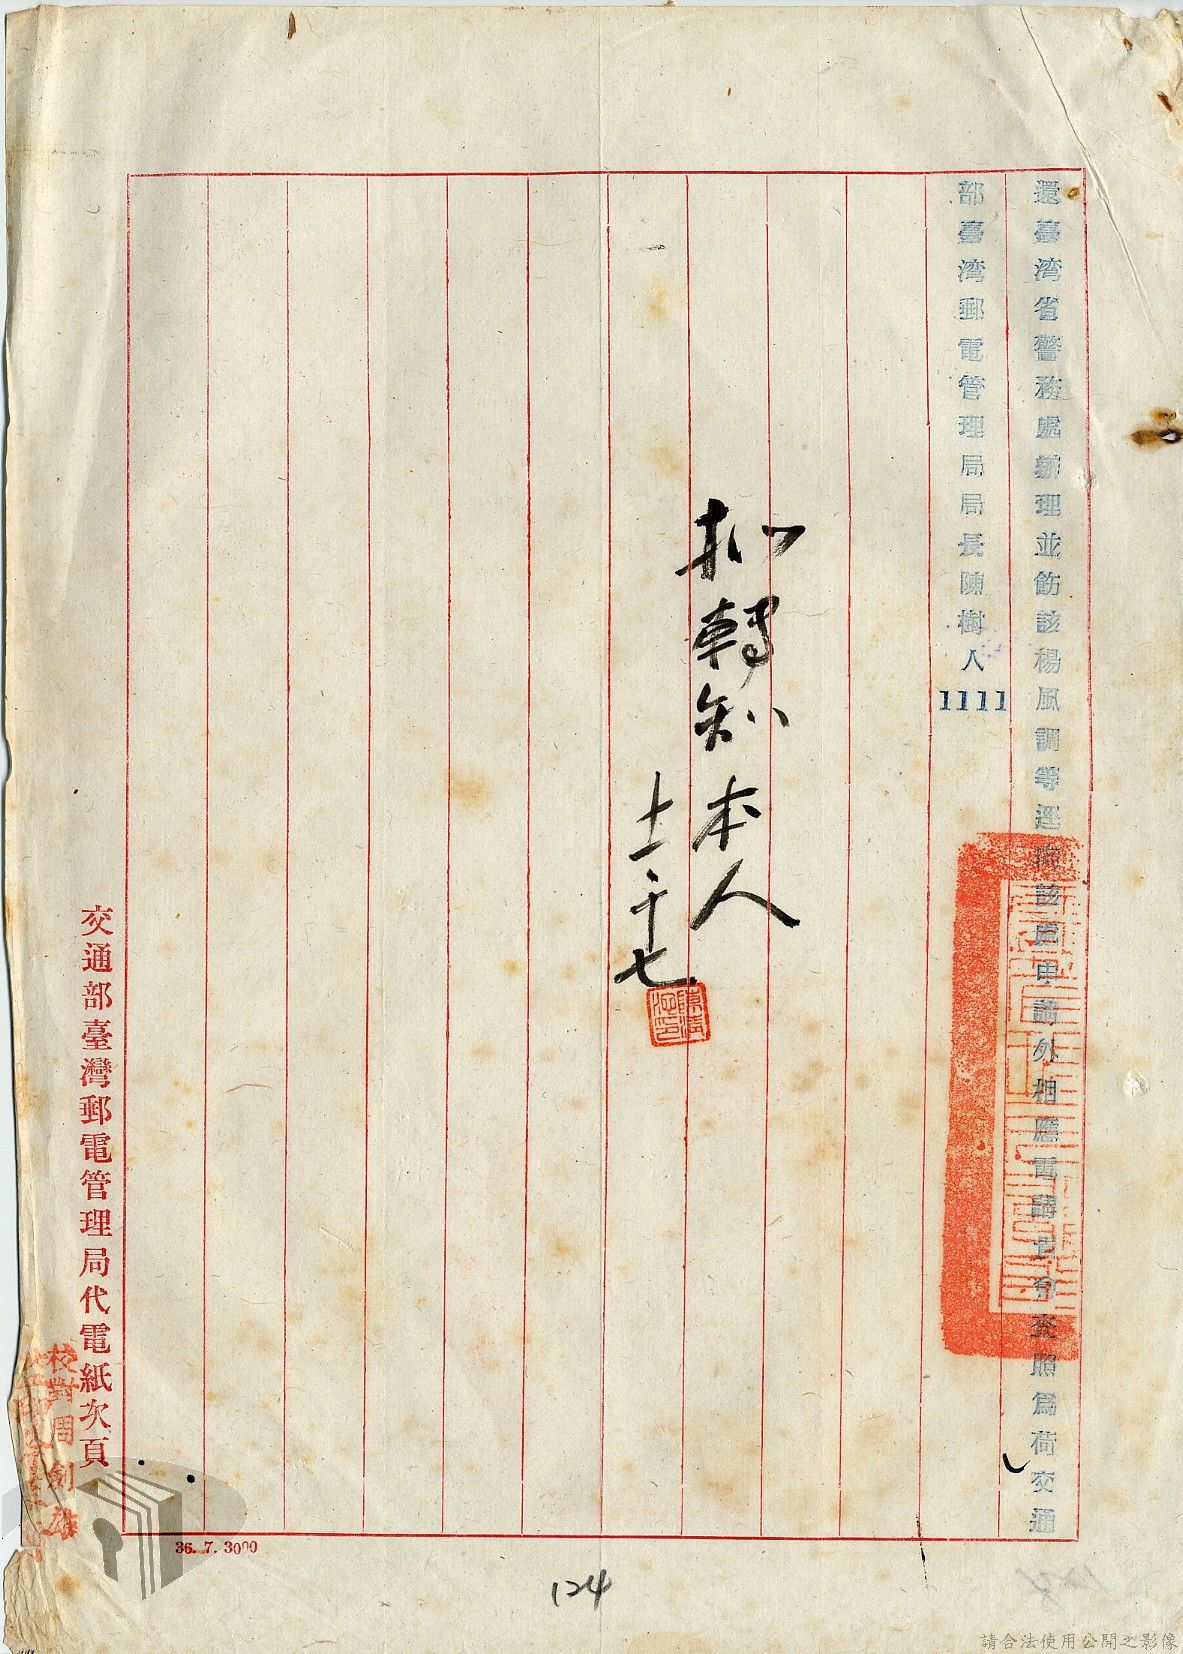 還臺湾省警務處辦理並飭該楊風調等逕向該處申請外相應電請貴會查照爲荷交通
部臺湾郵電管理局局長陳樹人
1111
扣轉知本人
十一、廿七
交通部臺灣郵電管理局代電紙次頁
校對周劍雄
36. 7. 3000
124
請合法使用公開之影像